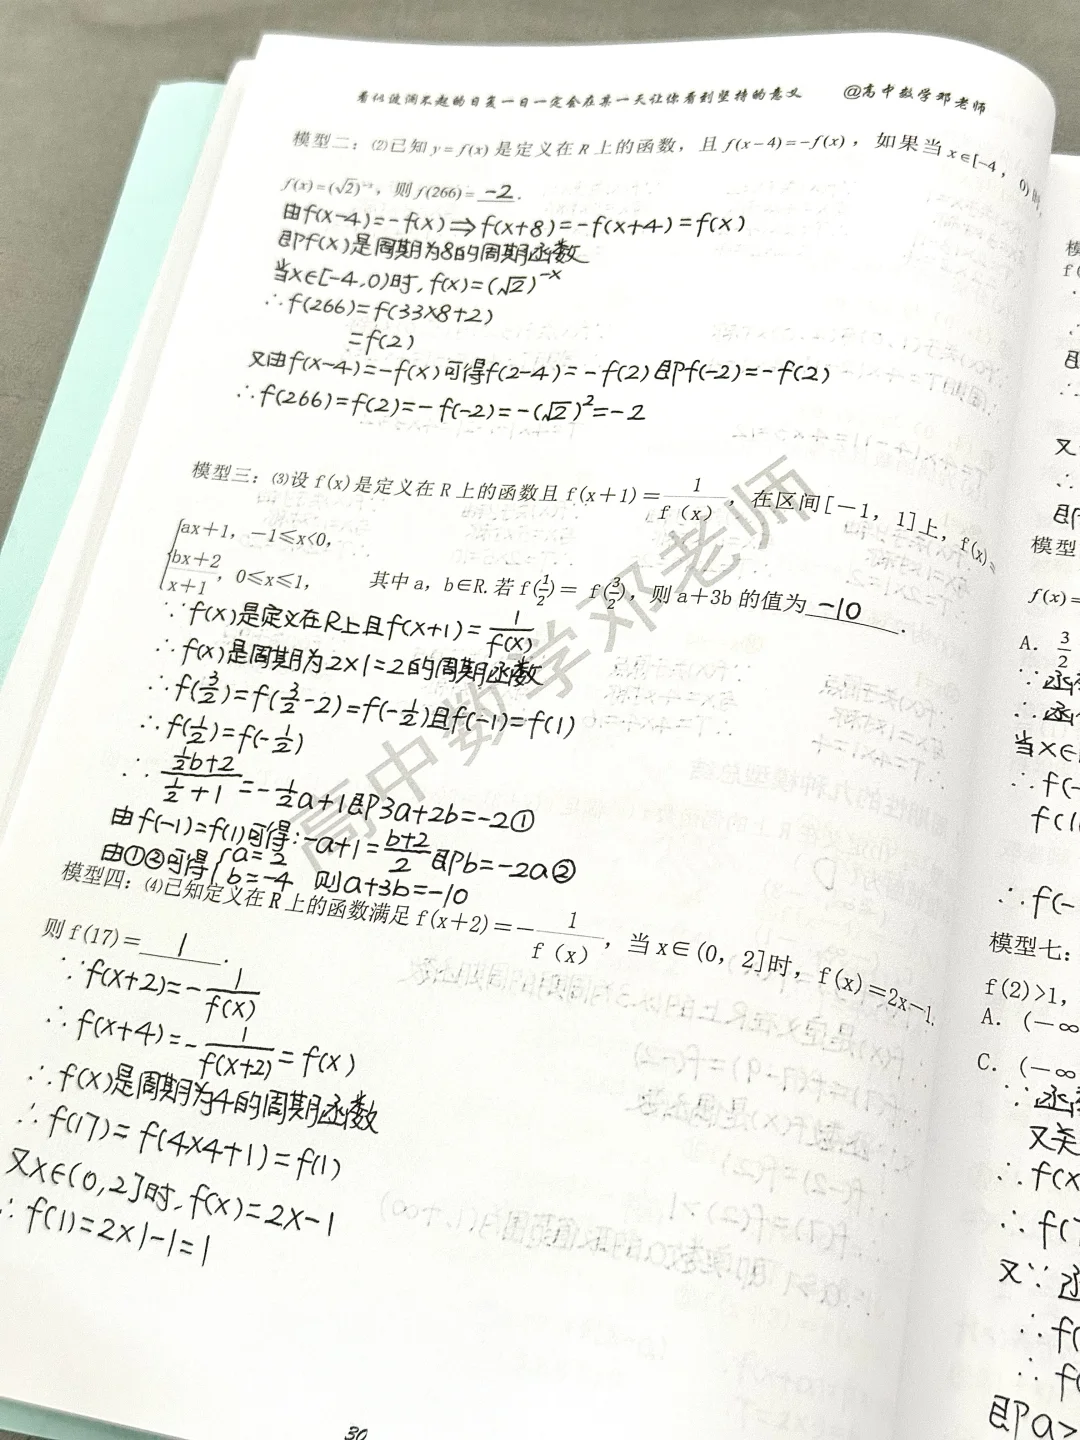 看似波澜不起的日复一日一定会在某一天让你看到坚持的意义 @高中数学邓老师
模型二：⑵已知y=f(x)是定义在R上的函数，且f(x-4)=-f(x)，如果当x∈[-4，0)时，
f(x)=(√2)^-x，则f(266)= -2 .
由f(x-4)=-f(x)⇒f(x+8)=-f(x+4)=f(x)
即f(x)是周期为8的周期函数
当x∈[-4,0)时,f(x)=(√2)^-x
∴f(266)=f(33×8+2)
=f(2)
又由f(x-4)=-f(x)可得f(2-4)=-f(2)即f(-2)=-f(2)
∴f(266)=f(2)=-f(-2)=-(√2)²=-2
模型三：⑶设f(x)是定义在R上的函数且f(x+1)=1/f(x)，在区间[-1，1]上，f(x)=
{ax+1，-1≤x<0，
(bx+2)/(x+1)，0≤x≤1， 其中a，b∈R.若f(1/2)=f(3/2)，则a+3b的值为 -10 .
∵f(x)是定义在R上且f(x+1)=1/f(x)
∴f(x)是周期为2×1=2的周期函数
∴f(3/2)=f(3/2-2)=f(-1/2)且f(-1)=f(1)
∴f(1/2)=f(-1/2)
∴(1/2b+2)/(1/2+1)=-1/2a+1即3a+2b=-2①
由f(-1)=f(1)可得:-a+1=(b+2)/2即b=-2a②
由①②可得{a=2 b=-4 则a+3b=-10
模型四：⑷已知定义在R上的函数满足f(x+2)=-1/f(x)，当x∈(0，2]时，f(x)=2x-1.
则f(17)= 1 .
∵f(x+2)=-1/f(x)
∴f(x+4)=-1/f(x+2)=f(x)
∴f(x)是周期为4的周期函数
∴f(17)=f(4×4+1)=f(1)
又x∈(0,2]时,f(x)=2x-1
∴f(1)=2×1-1=1
30
高中数学邓老师
f(
又
即
模型
f(x)=
A. 3/2
∵函
∴函
当x∈
∴f(-
f(1
∴f(-
模型七：
f(2)>1，
A. (-∞
C. (-∞
∵函
又关
∴f(x
∴f(7
又∵
∴f(
∴f(
即a>